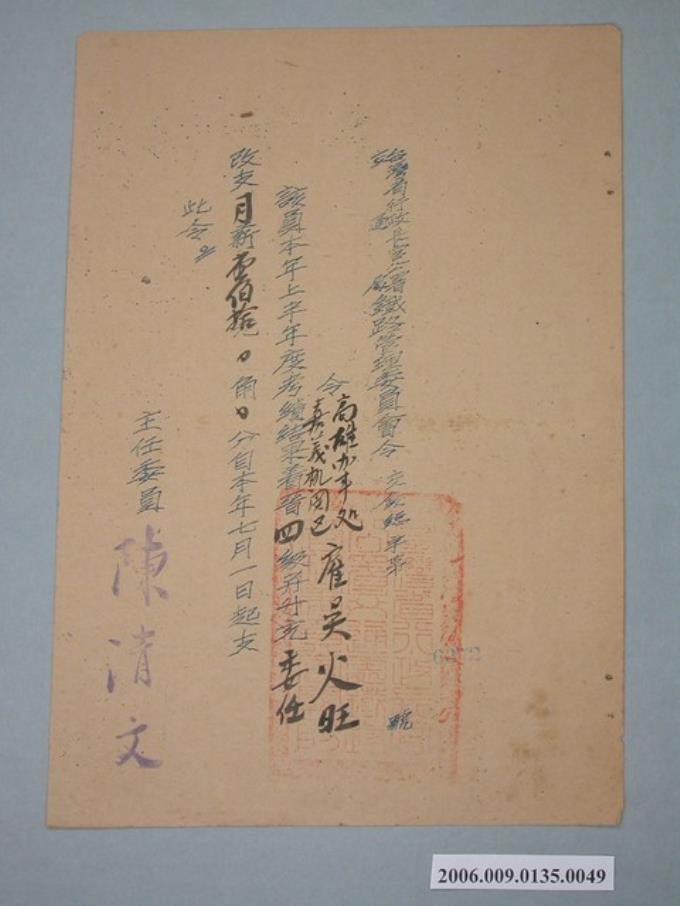 台灣省行政長官公署
交通處
鐵路管理委員會令 交人經字第6272號
令 高雄办事処
嘉義机関区 雇 吳火旺
該員本年上半年度考績結果着晉四級并升充委任
改支月薪壹佰拾元0角0分自本年七月一日起支
此令
主任委員 陳清文
2006.009.0135.0049